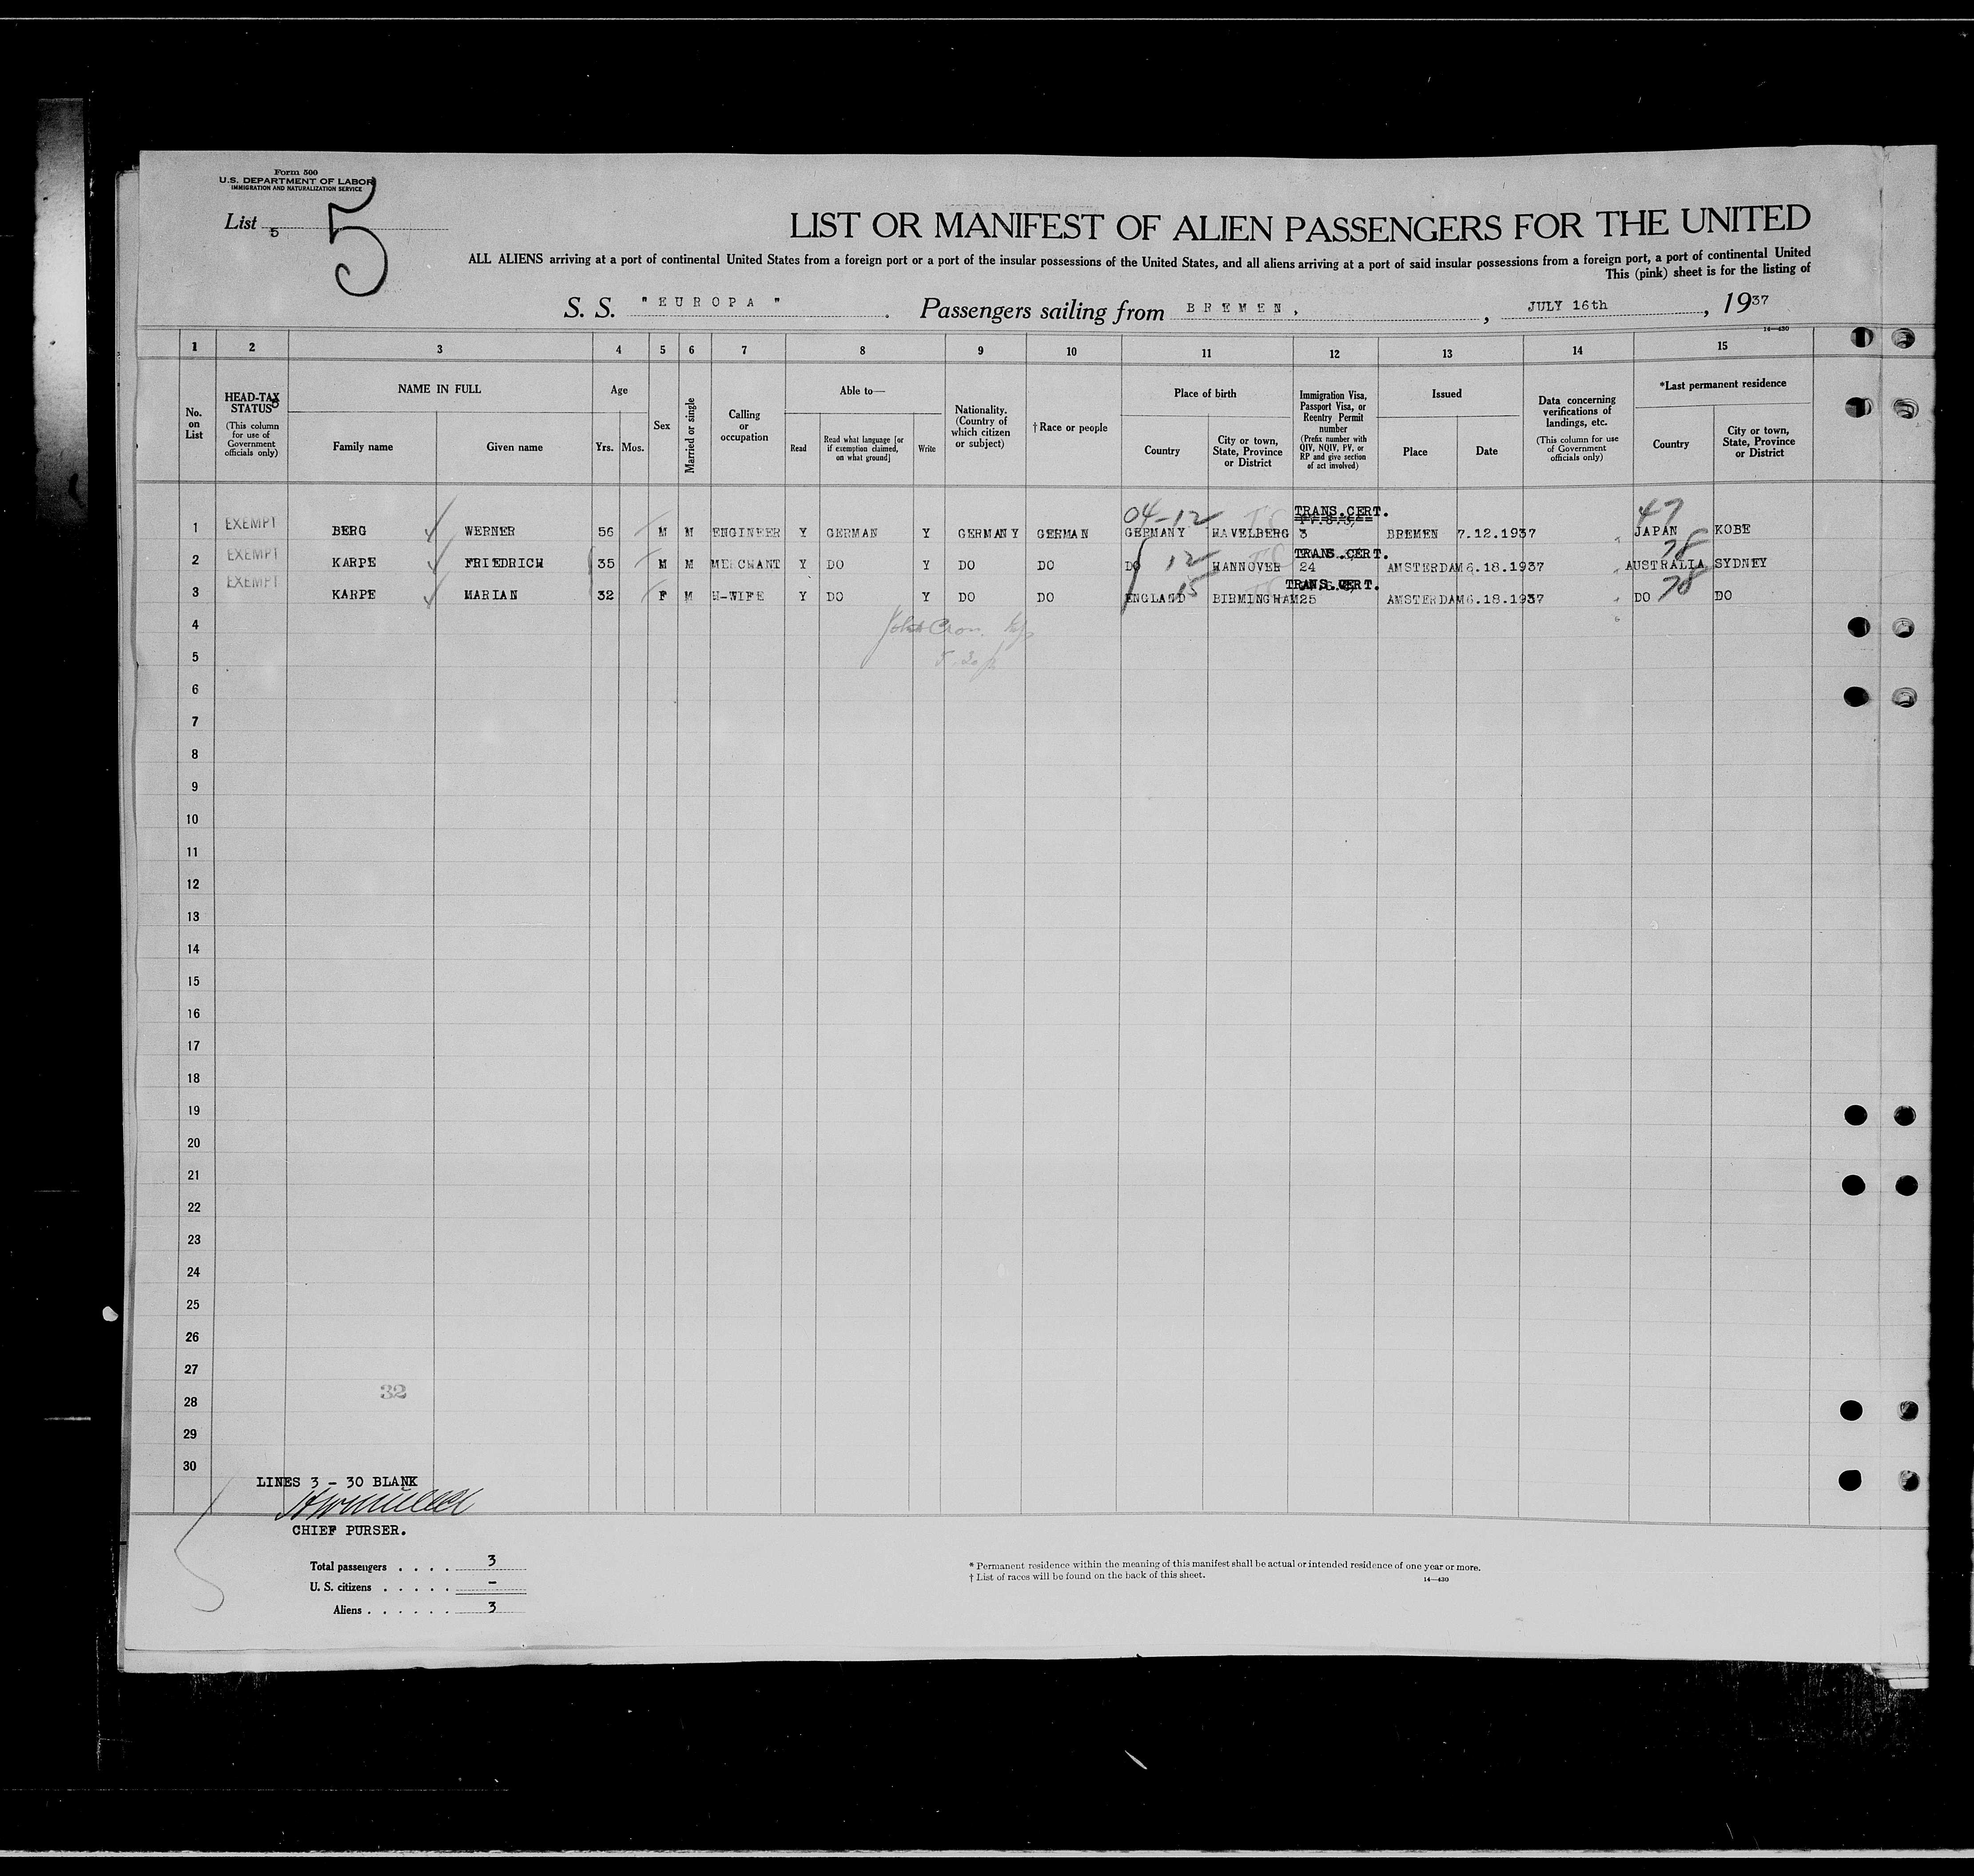 Form 500
U.S. DEPARTMENT OF LABOR
IMMIGRATION AND NATURALIZATION SERVICE
List 5
5
LIST OR MANIFEST OF ALIEN PASSENGERS FOR THE UNITED
ALL ALIENS arriving at a port of continental United States from a foreign port or a port of the insular possessions of the United States, and all aliens arriving at a port of said insular possessions from a foreign port, a port of continental United
This (pink) sheet is for the listing of
S. S. "EUROPA". Passengers sailing from BREMEN, , JULY 16th , 1937
14—430
1 2 3 4 5 6 7 8 9 10 11 12 13 14 15
No. on List
HEAD-TAX STATUS
5
(This column for use of Government officials only)
NAME IN FULL
Family name Given name
Age
Yrs. Mos.
Sex
Married or single
Calling or occupation
Able to—
Read
Read what language [or if exemption claimed, on what ground]
Write
Nationality. (Country of which citizen or subject)
†Race or people
Place of birth
Country
City or town, State, Province or District
Immigration Visa, Passport Visa, or Reentry Permit number
(Prefix number with QIV, NQIV, PV, or RP and give section of act involved)
Issued
Place Date
Data concerning verifications of landings, etc.
(This column for use of Government officials only)
*Last permanent residence
Country
City or town, State, Province or District
04-12 TRANS.CERT. 47
1 EXEMPT BERG WERNER 56 M M ENGINEER Y GERMAN Y GERMANY GERMAN GERMANY HAVELBERG 3 BREMEN 7.12.1937 JAPAN KOBE
12 TRANS.CERT. 78
2 EXEMPT KARPE FRIEDRICH 35 M M MERCHANT Y DO Y DO DO DO HANNOVER 24 AMSTERDAM 6.18.1937 AUSTRALIA SYDNEY
15 TRANS.CERT. 78
3 EXEMPT KARPE MARIAN 32 F M H-WIFE Y DO Y DO DO ENGLAND BIRMINGHAM 25 AMSTERDAM 6.18.1937 DO DO
4
5
6
7
8
9
10
11
12
13
14
15
16
17
18
19
20
21
22
23
24
25
26
27
32
28
29
30
LINES 3 - 30 BLANK
CHIEF PURSER.
Total passengers . . . . 3
U. S. citizens . . . . . -
Aliens . . . . . . 3
* Permanent residence within the meaning of this manifest shall be actual or intended residence of one year or more.
† List of races will be found on the back of this sheet.
14—430